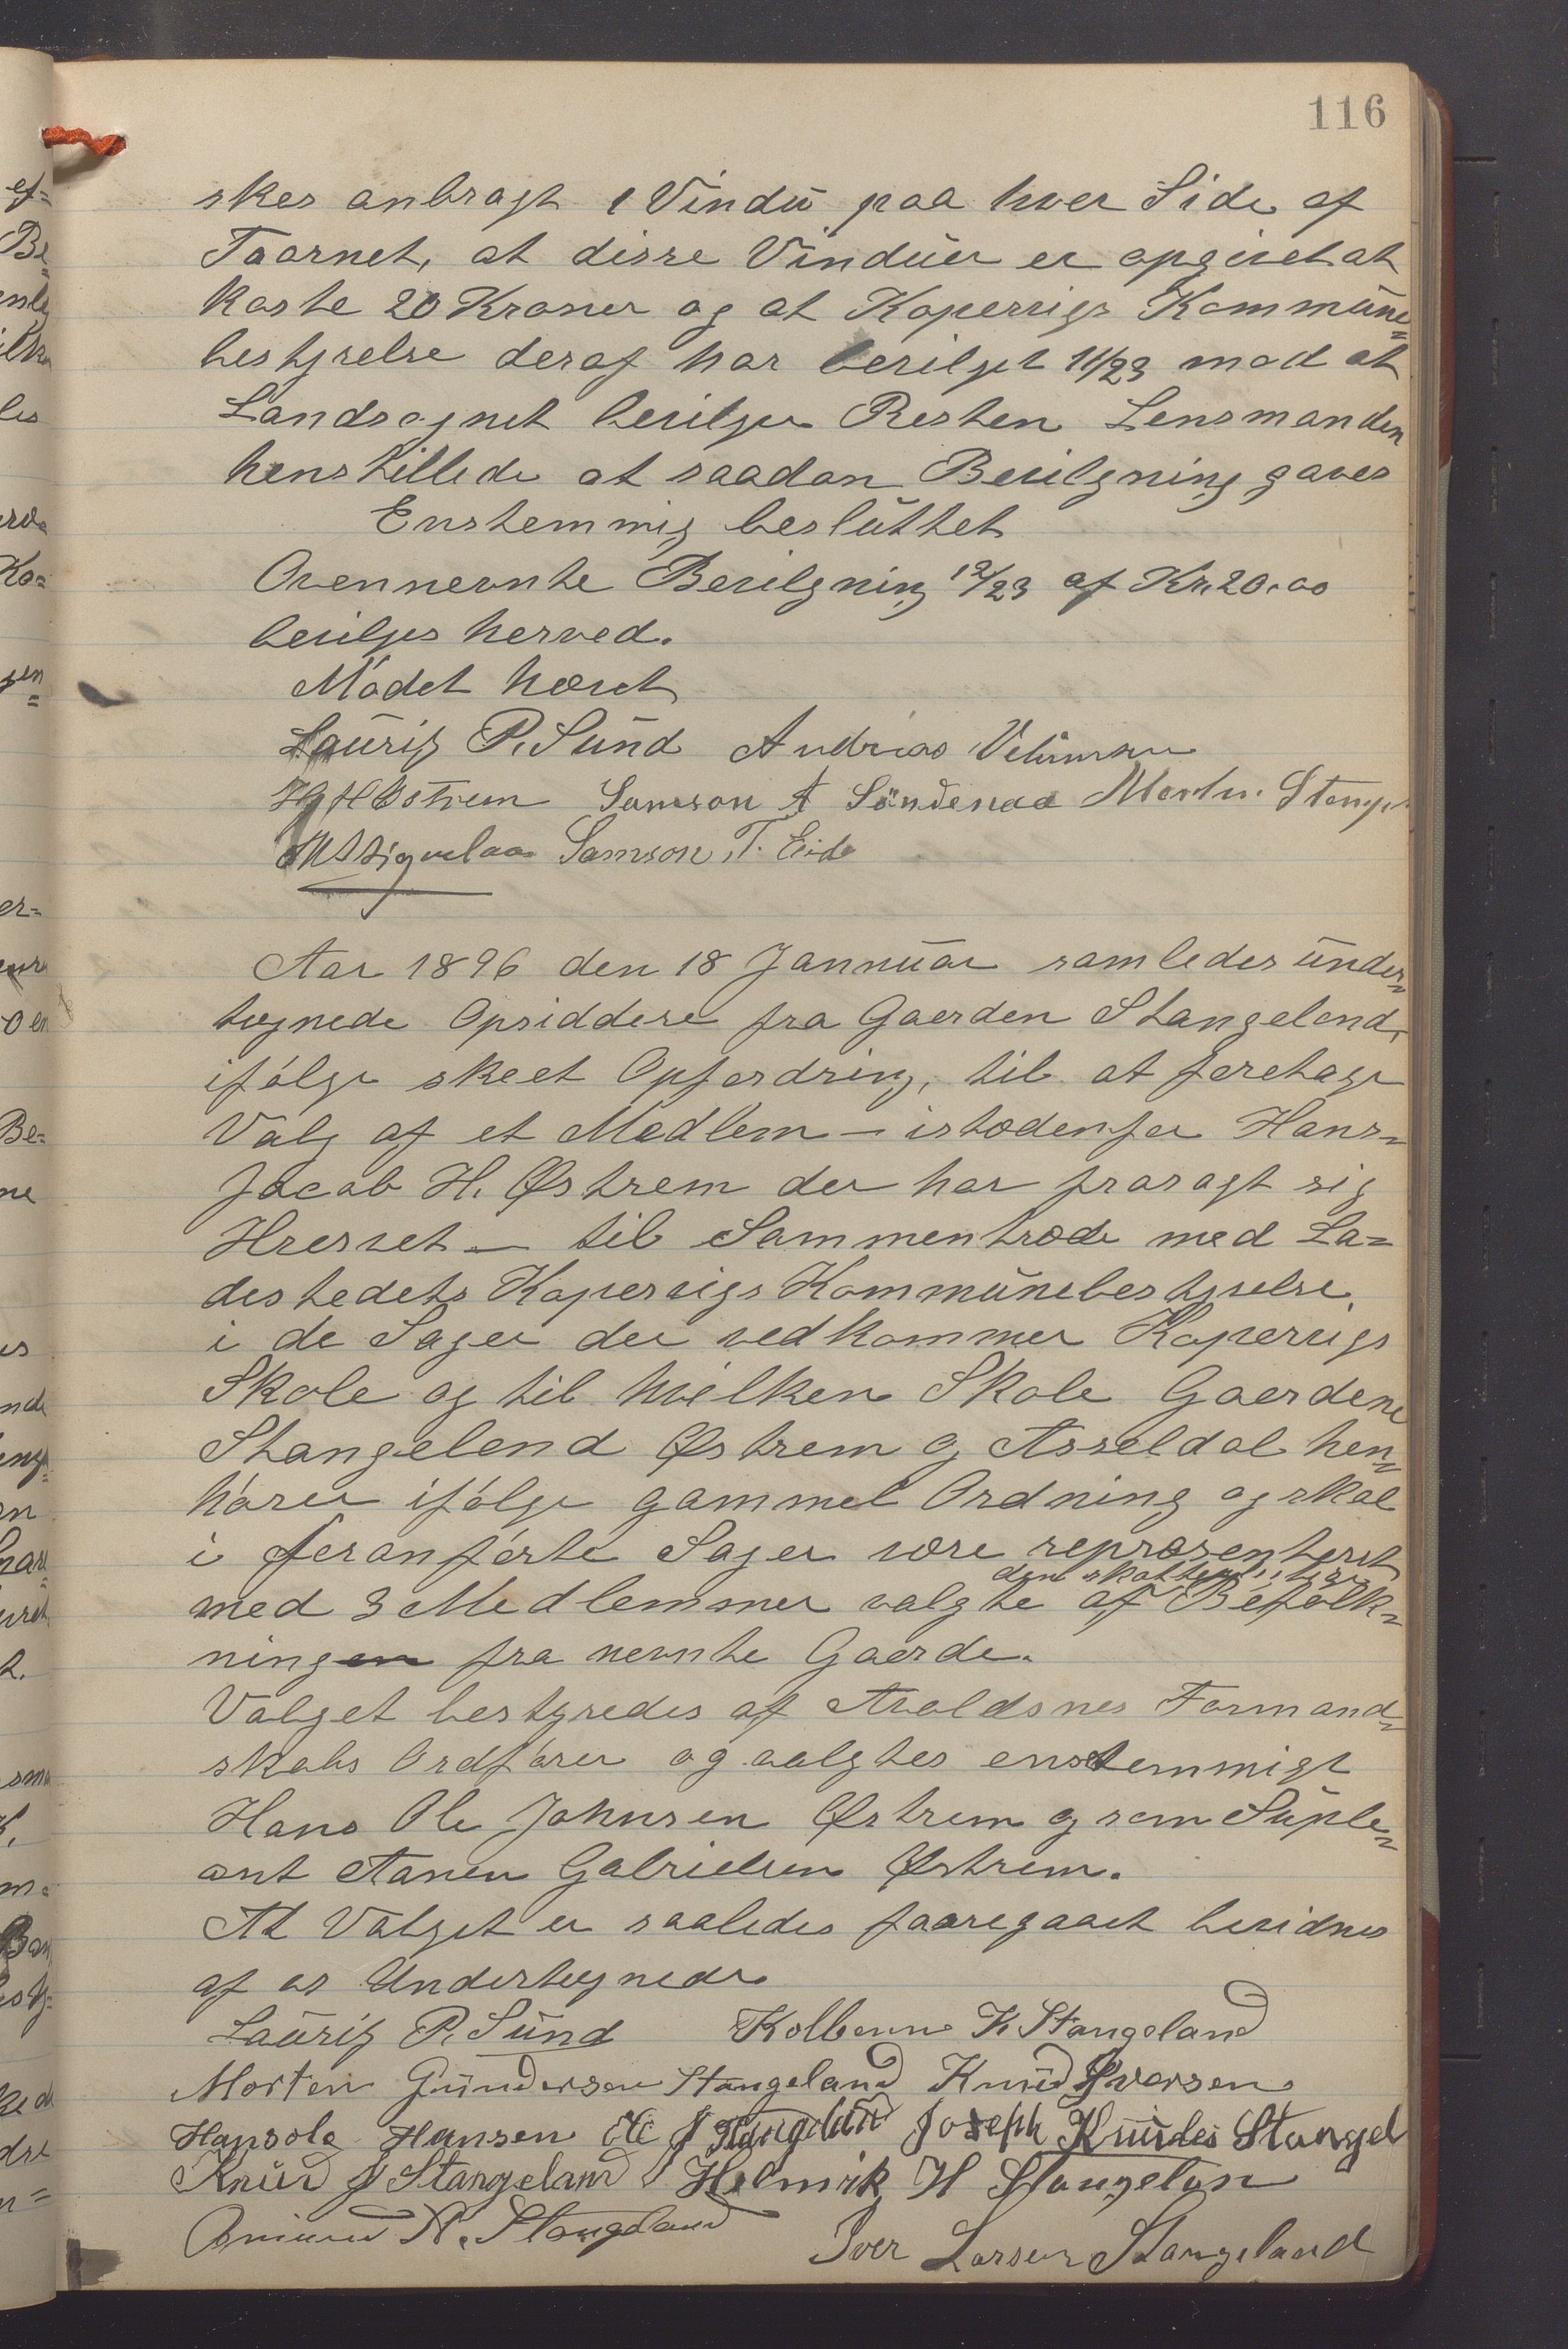 116
skes anbragt 1 Vindu paa hver Side af
Taarnet, at disse Vinduer er opgivet at
koste 20 Kroner og at Kopervigs Kommune=
bestyrelse deraf har bevilget 11/23 mod at
Landsognet bevilger Resten Lensmanden
henstillede at saadan Bevilgning gaves
Enstemmig besluttet
Ovennevnte Bevilgning 12/23 af Kr. 20.00
beviljes herved.
Mødet hævet
Lauriz P. Sund Andreas Velumsen
H J H Østrem Samson A Søndenaa Morten Stange
Samson T. Eide
Aar 1896 den 18 Jannuar samledes under=
tegnede Opsiddere fra Gaarden Stangeland,
ifølge skeet Opfordring, til at foretage
Valg af et Medlem - istædenfor Hans=
Jacob H. Østrem der har frasagt sig
Hvervet - til Sammentræde med La=
destedets Kopervigs Kommunebestyrelse.
i de Sager der vedkommer Kopervigs
Skole og til hvilken Skole Gaardene
Stangeland Østrem og Asseldal hen=
hører ifølge gammel Ordning og skal
i foranførte Sager være representeret
den skattepligtige
med 3 Medlemmer valgte af Befolk=
ningen fra nevnte Gaarde.
Valget bestyredes af Avaldsnes Formand=
skabs Ordfører og valgtes enstemmigt
Hans Ole Johnsen Østrem og som Suple=
ant Aanen Gabrielsen Østrem.
At Valget er saaledes foaregaaet bevidnes
af os Undertegnede
Lauriz P. Sund Kolbenn K Stangeland
Morten Gundersen Stangeland Knud Iversen
Hansole Hansen Ole J Stangeland Joseph Knudes Stangel
Knud J Stangeland Helmik H Stangelan
N. Stangeland
Iver Larsen Stangeland